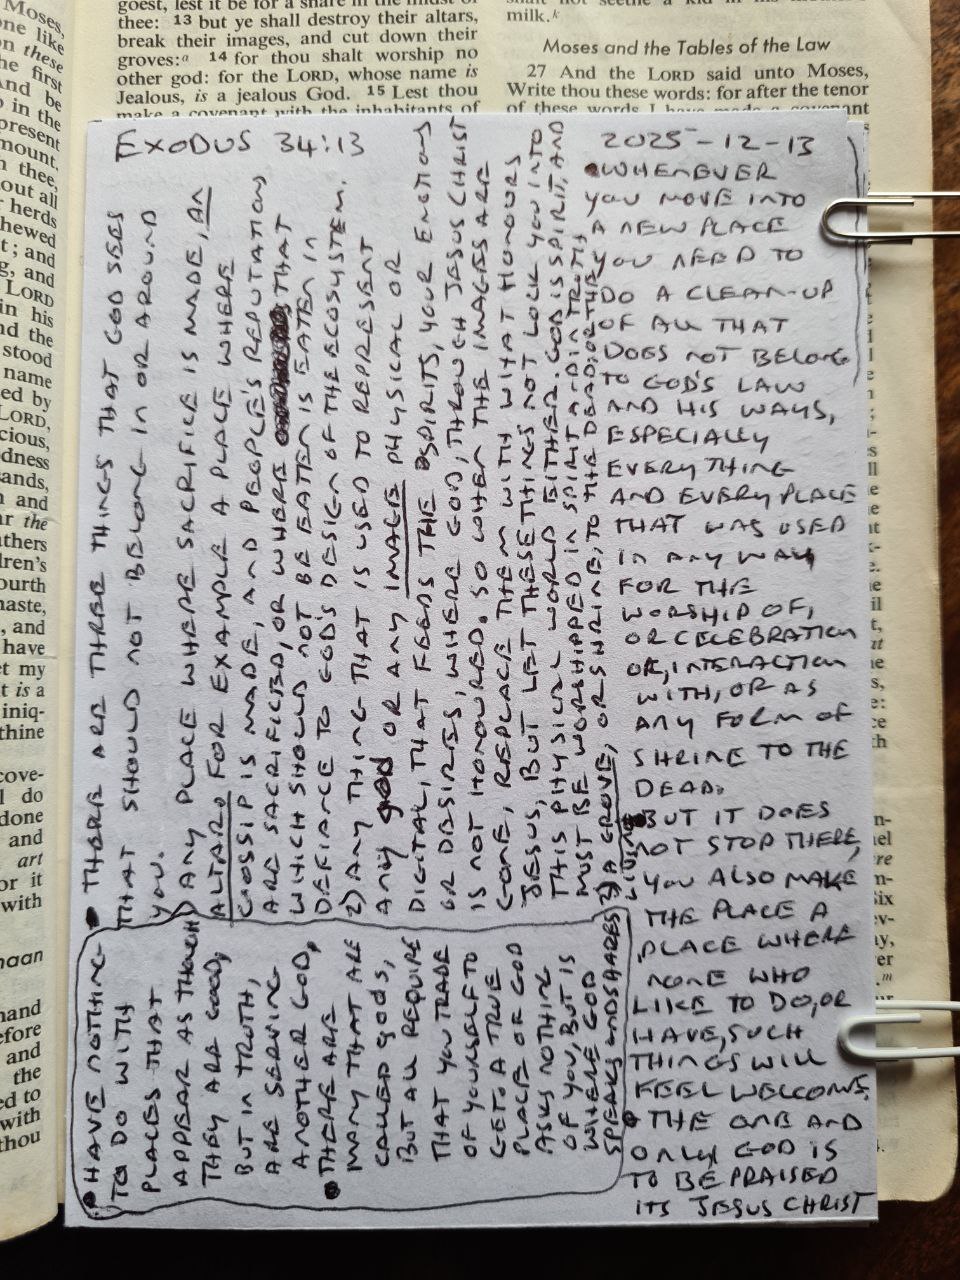 goest, lest it be for a snare in the midst of
thee: 13 but ye shall destroy their altars,
break their images, and cut down their
groves:a 14 for thou shalt worship no
other god: for the LORD, whose name is
Jealous, is a jealous God. 15 Lest thou
make a covenant with the inhabitants of
shalt not seethe a kid in his mother's
milk.k
Moses and the Tables of the Law
27 And the LORD said unto Moses,
Write thou these words: for after the tenor
of these words I have made a covenant
EXODUS 34:13
2025-12-13
• WHENEVER
YOU MOVE INTO
A NEW PLACE
YOU NEED TO
DO A CLEAN-UP
OF ALL THAT
DOES NOT BELONG
TO GOD'S LAW
AND HIS WAYS,
ESPECIALLY
EVERYTHING
AND EVERY PLACE
THAT WAS USED
IN ANY WAY
FOR THE
WORSHIP OF,
OR CELEBRATION
OF, INTERACTION
WITH, OR AS
ANY FORM OF
SHRINE TO THE
DEAD.
• BUT IT DOES
NOT STOP THERE,
YOU ALSO MAKE
THE PLACE A
PLACE WHERE
NONE WHO
LIKE TO DO, OR
HAVE, SUCH
THINGS WILL
FEEL WELCOME.
• THE ONE AND
ONLY GOD IS
TO BE PRAISED
ITS JESUS CHRIST
• THERE ARE THREE THINGS THAT GOD SEES
THAT SHOULD NOT BELONG IN OR AROUND
YOU.
1) ANY PLACE WHERE SACRIFICE IS MADE, AN
ALTAR. FOR EXAMPLE A PLACE WHERE
GOSSIP IS MADE, AND PEOPLE'S REPUTATIONS
ARE SACRIFICED, OR WHERE THAT
WHICH SHOULD NOT BE EATEN IS EATEN IN
DEFIANCE TO GOD'S DESIGN OF THE ECOSYSTEM.
2) ANY THING THAT IS USED TO REPRESENT
ANY god OR ANY IMAGE PHYSICAL OR
DIGITAL, THAT FEEDS THE SPIRITS, YOUR EMOTIONS
OR DESIRES, WHERE GOD, THROUGH JESUS CHRIST
IS NOT HONOURED. SO WHEN THE IMAGES ARE
GONE, REPLACE THEM WITH WHAT HONOURS
JESUS, BUT LET THESE THINGS NOT LOCK YOU INTO
THIS PHYSICAL WORLD EITHER. GOD IS SPIRIT, AND
MUST BE WORSHIPPED IN SPIRIT AND IN TRUTH
3) A GROVE, OR SHRINE, TO THE DEAD, OR THE
LIVING
• HAVE NOTHING
TO DO WITH
PLACES THAT
APPEAR AS THOUGH
THEY ARE GOOD,
BUT IN TRUTH,
ARE SERVING
ANOTHER GOD,
• THERE ARE
MANY THAT ARE
CALLED gods,
BUT ALL REQUIRE
THAT YOU TRADE
OF YOURSELF TO
GET. A TRUE
PLACE OF GOD
ASKS NOTHING
OF YOU, BUT IS
WHERE GOD
SPEAKS AND SHARES